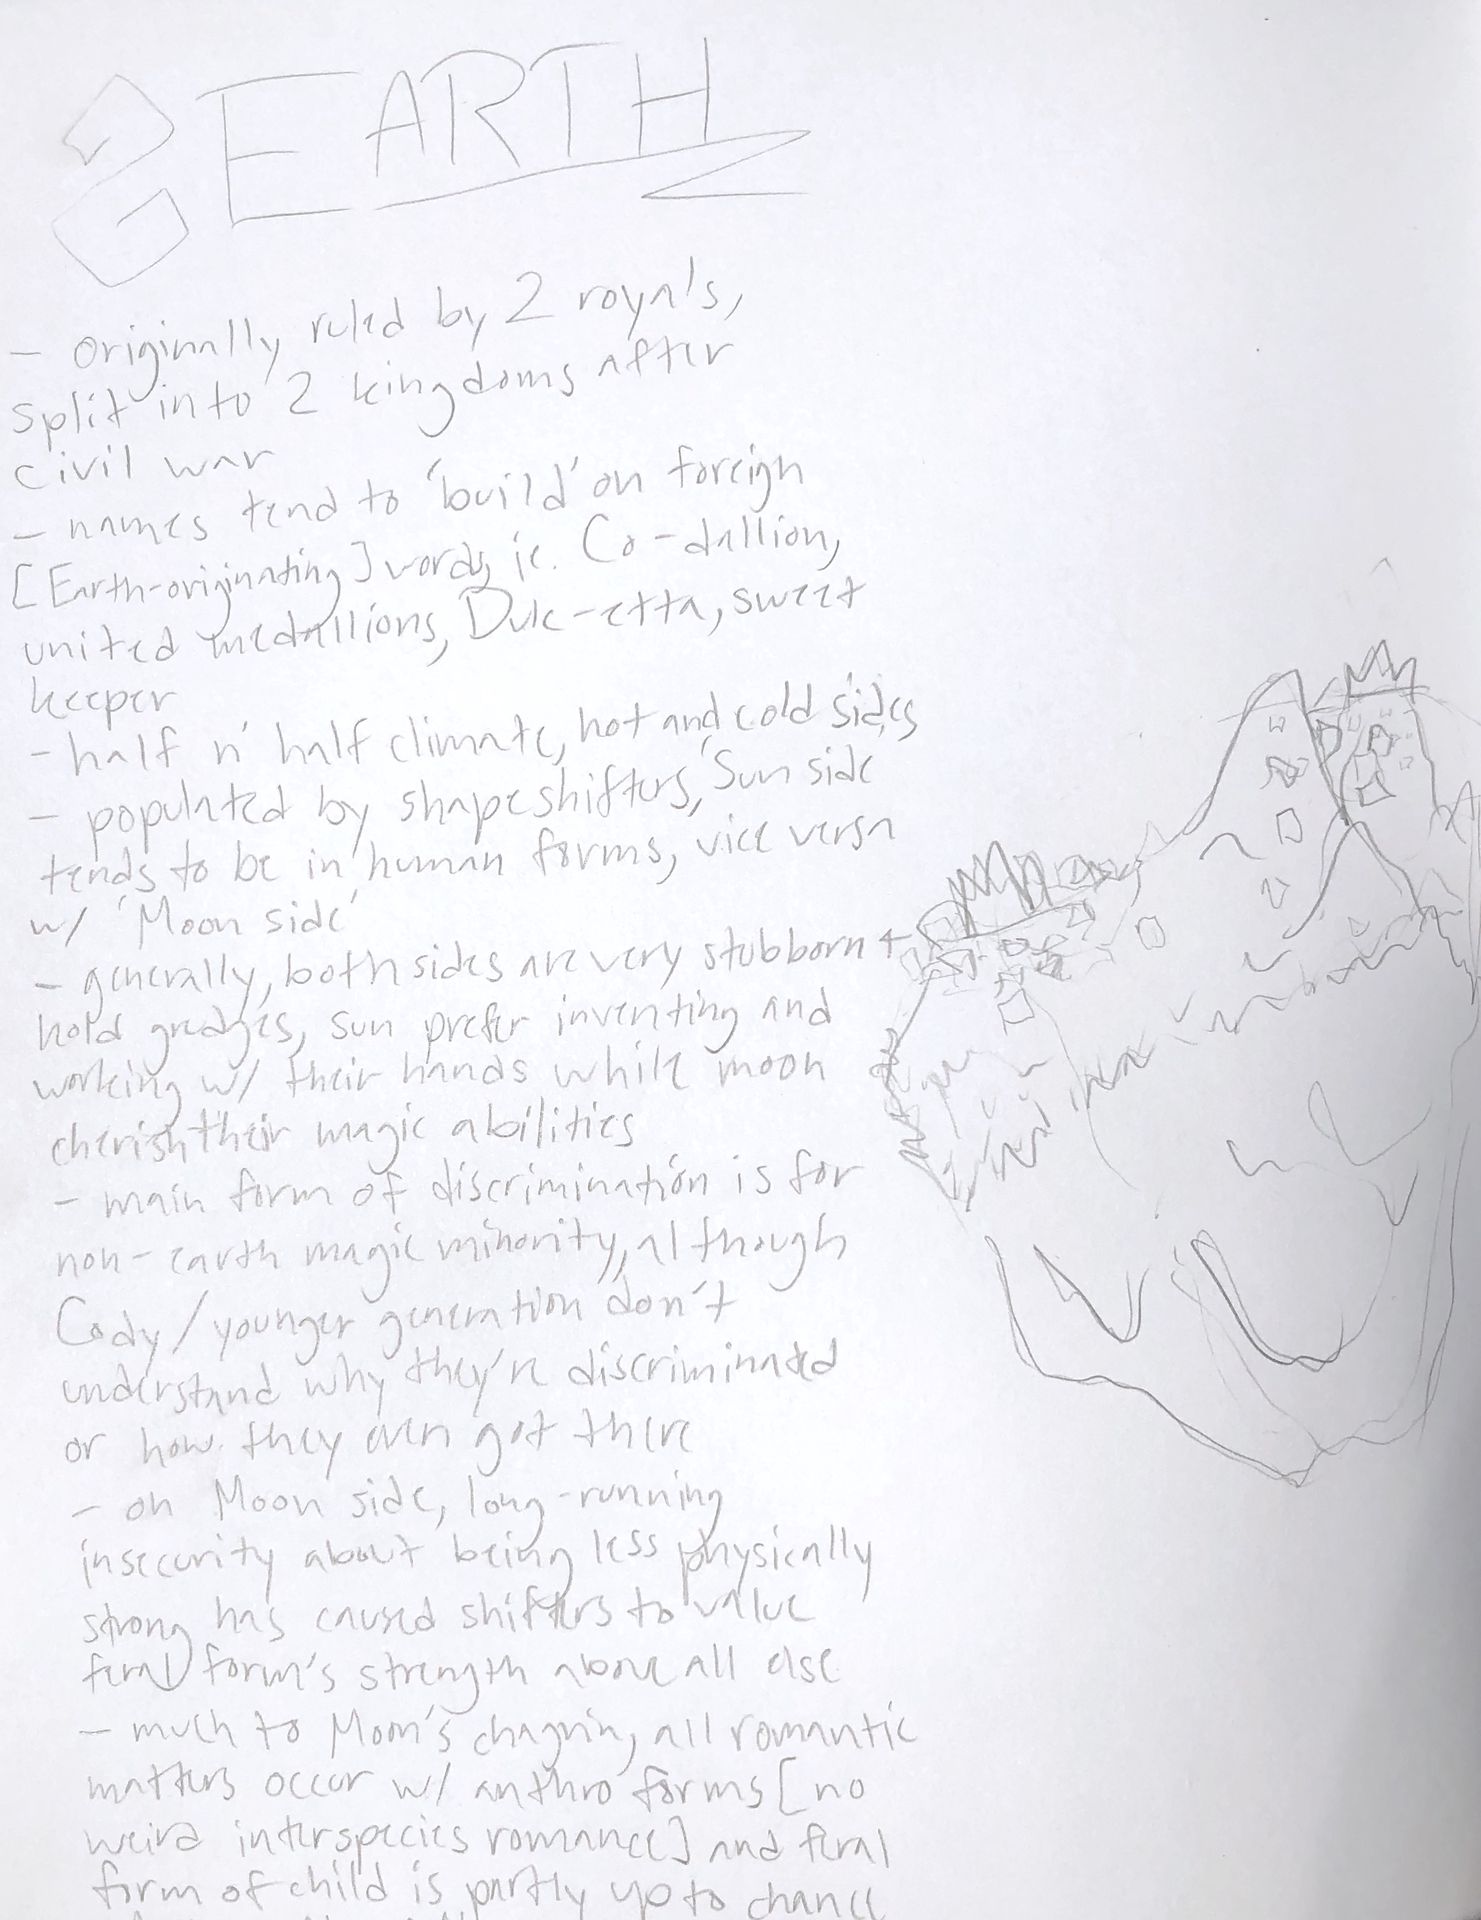 EARTH
- Originally ruled by 2 royals,
split into 2 kingdoms after
civil war
- names tend to 'build' on foreign
[Earth-originating] words, ie. Co-dallion,
united medallions, Dulc-etta, sweet
keeper
- half n' half climate, hot and cold sides
- populated by shapeshifters, 'Sun side
tends to be in human forms, vice versa
w/ 'Moon side'
- generally, both sides are very stubborn +
hold grudges, sun prefer inventing and
working w/ their hands while moon
cherish their magic abilities
- main form of discrimination is for
non-earth magic minority, although
Cody/younger generation don't
understand why they're discriminated
or how they even got there
- on Moon side, long-running
insecurity about being less physically
strong has caused shifters to value
feral form's strength above all else
- much to Moon's chagrin, all romantic
matters occur w/ anthro forms [no
weird interspecies romance] and feral
form of child is partly up to chance